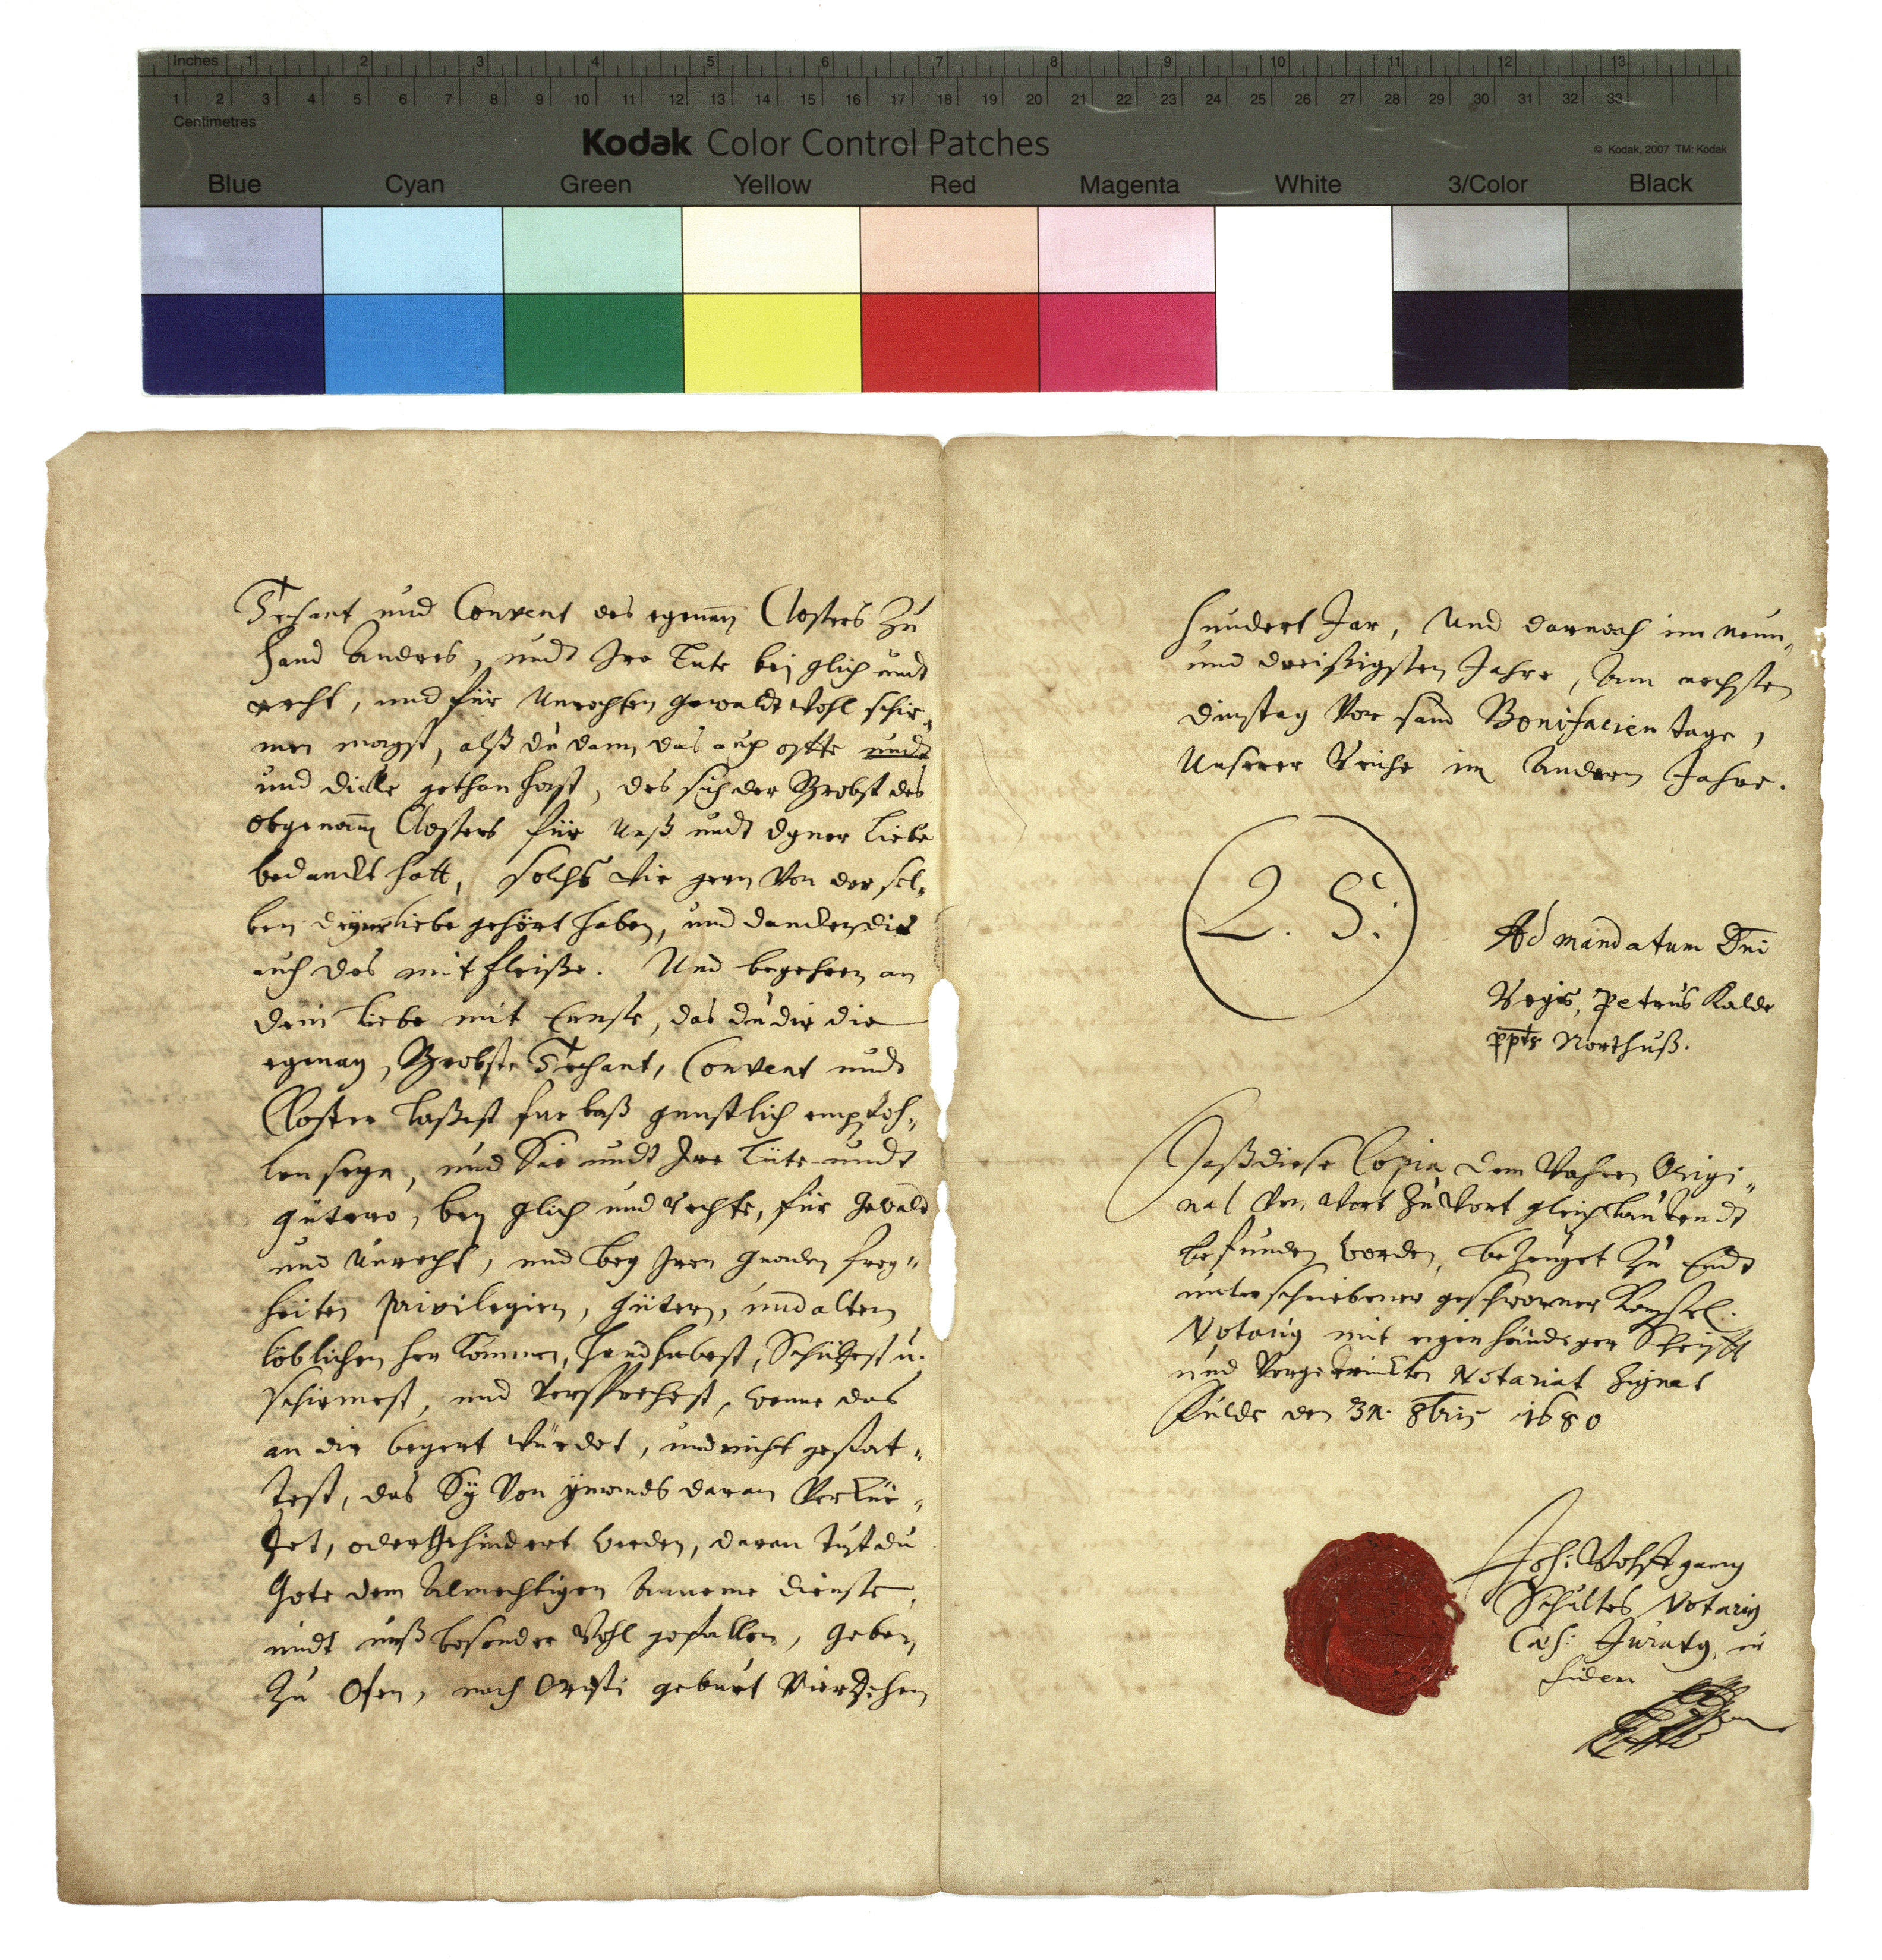 Inches 1 2 3 4 5 6 7 8 9 10 11 12 13
1 2 3 4 5 6 7 8 9 10 11 12 13 14 15 16 17 18 19 20 21 22 23 24 25 26 27 28 29 30 31 32 33
Centimetres
Kodak Color Control Patches
© Kodak, 2007 TM: Kodak
Blue Cyan Green Yellow Red Magenta White 3/Color Black
Techant und Convent des egenan Closters Zu
sand Andres, undt Ire Lute bei glich undt
recht, und für Unrechten gewaldt wohl schir„
men magst, alß du dann das auch offte undt
und dicke gethan hast, des sich der Probst des
obgenann Closters für Unß undt dyner Liebe
bedanckt hatt, solchs wir gern von der sel„
ben dyner liebe gehört haben, und dancken dir
auch des mit fleiße. Und begehren an
dein Liebe mit Ernste, das du dir die
egenan, Probste Techant, Convent undt
Closter laßest furbaß genstlich empfoh„
len seyn, und Sie undt Ire Lüte undt
gütere, bey glich und rechte, für gewald
und Unrecht, und bey Iren Gnaden frey„
heiten privilegien, gütern, und alten
löblichen her kommen, handhabest, Schützest u.
schirmest, und versprechest, wenne das
an dir begert würdet, und nicht gestat„
test, das Sy von ymands daran verkür„
tzet, oder gehindert werden, daran tust du
Gote dem Almechtigen Anneme dienste,
undt unß besonder wohl gefallen, Geben
Zu Ofen, nach Cristi geburt Vierzehen
hundert Jar, Und darnach im neun„
und dreißigsten Jahre, Am nechsten
dinstag vor sand Bonifacien tage,
Unserer Reiche im Andern Jahre.
L. S.
Ad mandatum Dni
Regis, Petrus Kalde
ppts Northuß.
Daß diese Copia dem wahren Origi„
nal von wort zu wort gleichlautendt
befunden worden, bezeuget zu Endt
unterschriebener geschworner Kayserl.
Notariq mit eigenhändiger Schrifft
und vorgetruckten Notariat Signet
Fulda den 31. 8bris 1680
Joh: Wolffgang
Schultes Notariq
Caes: Juratq, in
fidem